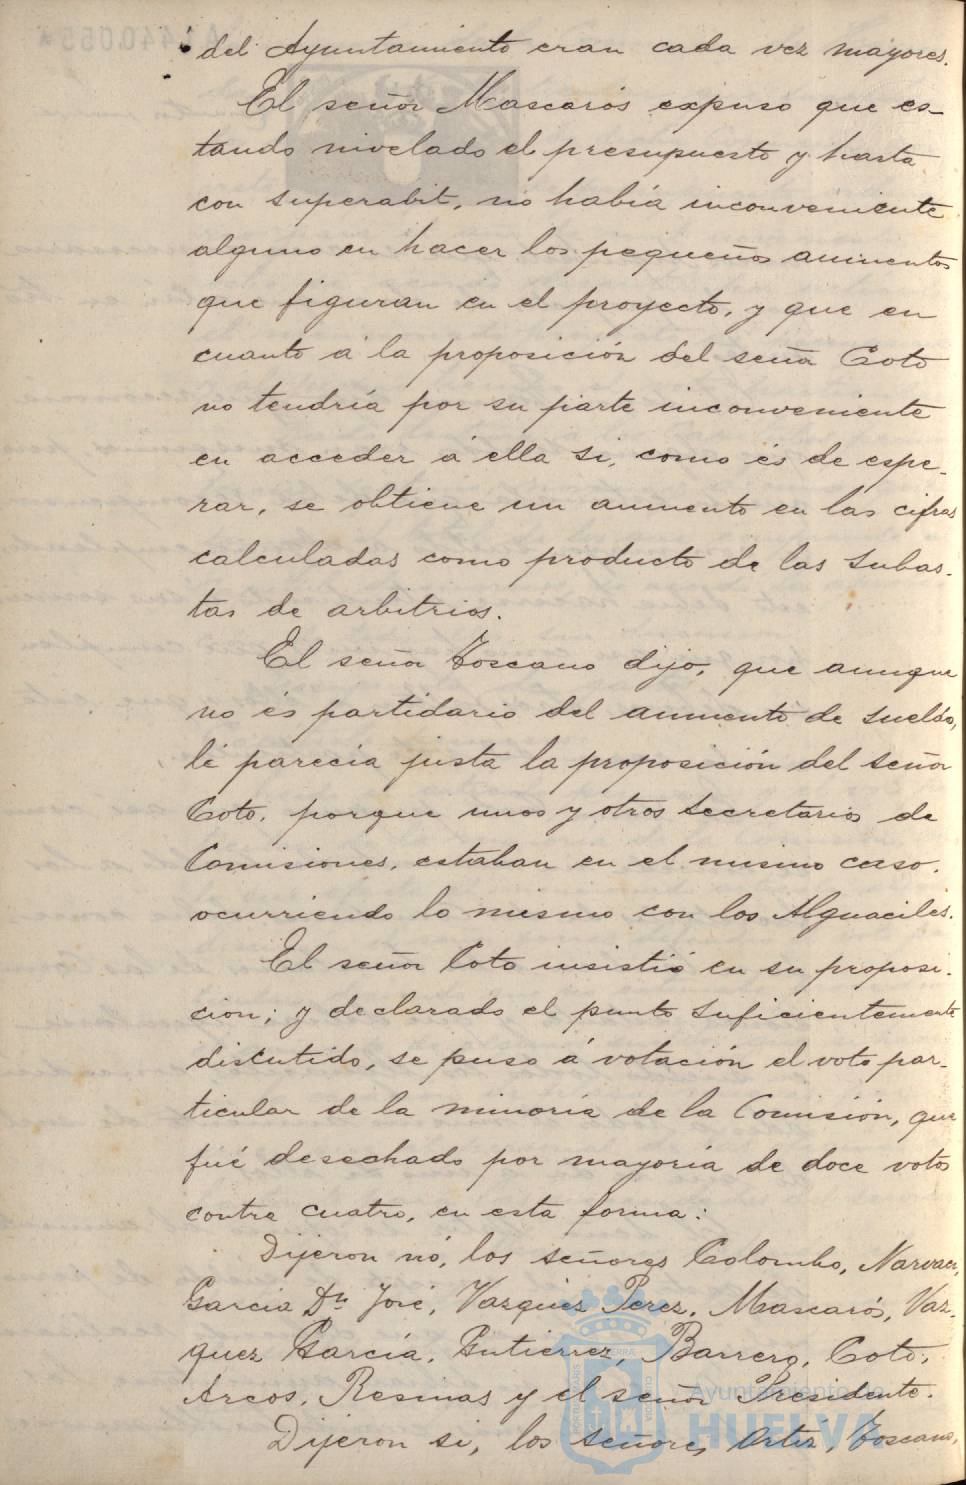 del Ayuntamiento eran cada vez mayores.
El señor Mascarós expuso que es-
tando nivelado el presupuesto y hasta
con superabit, no había inconveniente
alguno en hacer los pequeños aumentos
que figuran en el proyecto, y que en
cuanto á la proposición del señor Coto
no tendría por su parte inconveniente
en acceder á ella si, como és de espe-
rar, se obtiene un aumento en las cifras
calculadas como producto de las subas-
tas de arbitrios.
El señor Toscano dijo, que aunque
no és partidario del aumento de sueldo,
lé parecía justa la proposición del señor
Coto, porque unos y otros secretarios de
Comisiones, estaban en el mismo caso,
ocurriendo lo mismo con los Alguaciles.
El señor Coto insistió en su proposi-
ción; y declarado el punto suficientemente
discutido, se puso á votación el voto par-
ticular de la minoría de la Comisión, que
fué desechado por mayoría de doce votos
contra cuatro, en esta forma:
Dijeron nó, los señores Colombo, Narvaez,
García Dn José, Vazquez Perez, Mascarós, Vaz-
quez García, Gutierrez, Barrero, Coto,
Arcos, Resinas y el señor Presidente.
Dijeron si, los señores Ortiz, Toscano,
Ayuntamiento de
HUELVA